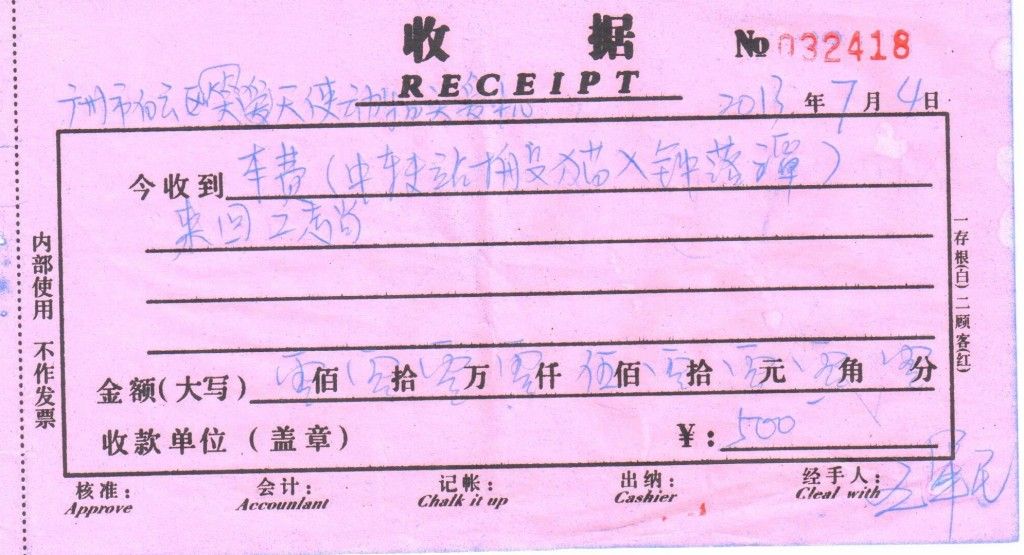 收 据
RECEIPT
№ 032418
广州市白云区 爱天使动物
2013 年 7 月 4 日
今收到 车费（中转站搬 猫入钟落潭）
来回
金额(大写) 零佰零拾零万零仟伍佰零拾零元零角零分
收款单位（盖章） ¥: 500
核准: 会计: 记帐: 出纳: 经手人:
Approve Accountant Chalk it up Cashier Cleal with
内部使用 不作发票
一存根(白)二顾客(红)